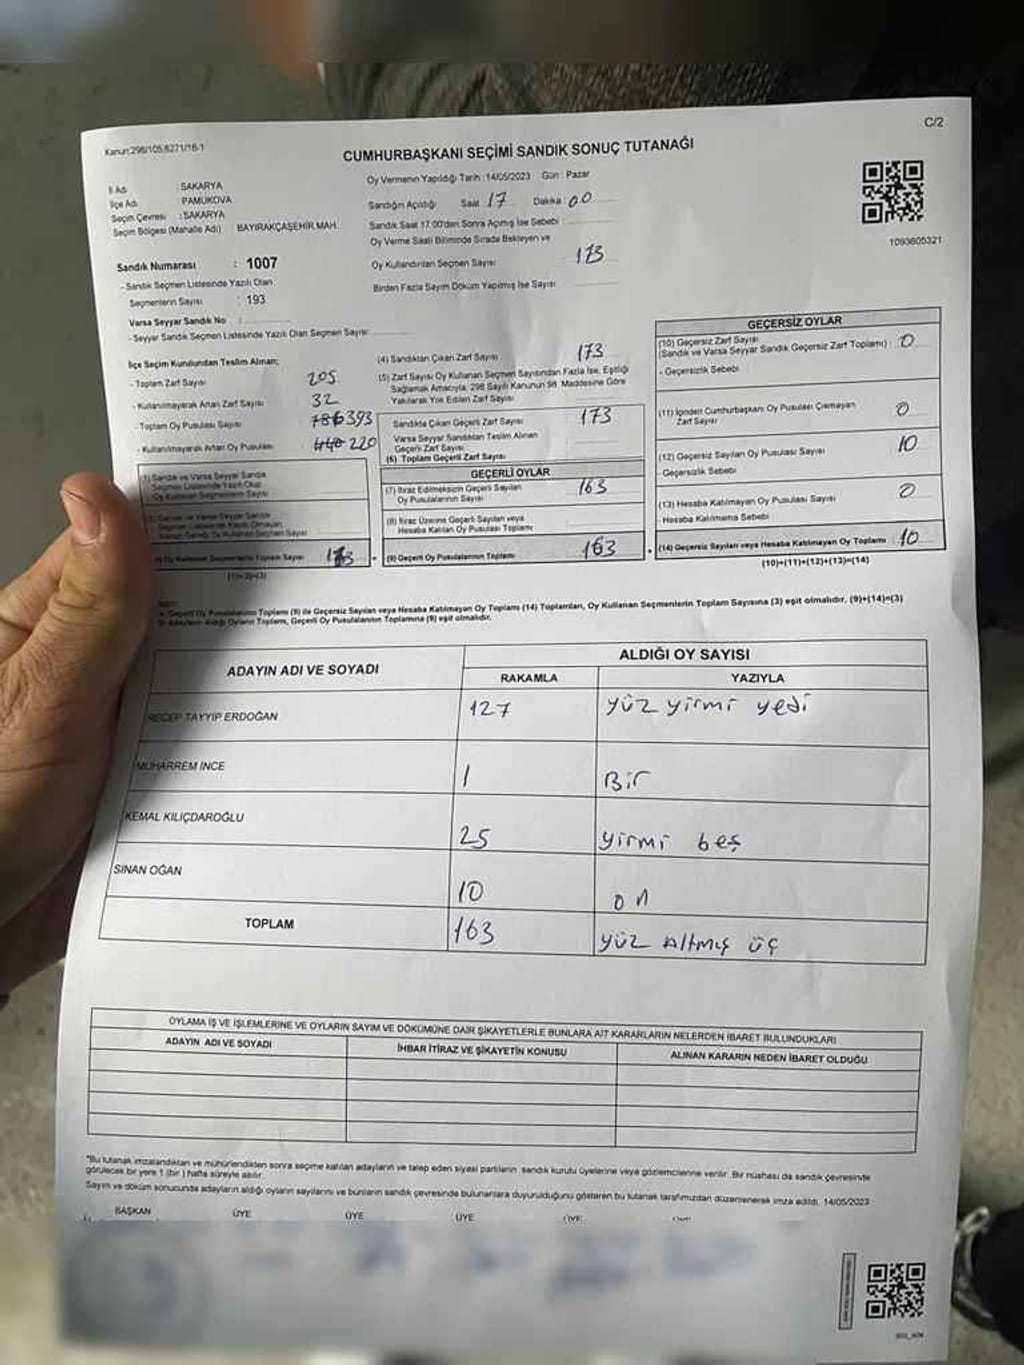 Kanun:298/105,6271/16-1
C/2
CUMHURBAŞKANI SEÇİMİ SANDIK SONUÇ TUTANAĞI
İl Adı : SAKARYA
İlçe Adı : PAMUKOVA
Seçim Çevresi : SAKARYA
Seçim Bölgesi (Mahalle Adı) BAYIRAKÇAŞEHİR MAH.
Oy Vermenin Yapıldığı Tarih :14/05/2023 Gün : Pazar
Sandığın Açıldığı Saat 17 Dakika 00
Sandık Saat 17:00'den Sonra Açımış İse Sebebi :
Oy Verme Saati Bitiminde Sırada Bekleyen ve
Oy Kullandırılan Seçmen Sayısı 173
Birden Fazla Sayım Döküm Yapılmış İse Sayısı
1093605321
Sandık Numarası : 1007
- Sandık Seçmen Listesinde Yazılı Olan
Seçmenlerin Sayısı : 193
Varsa Seyyar Sandık No :
- Seyyar Sandık Seçmen Listesinde Yazılı Olan Seçmen Sayısı:
İlçe Seçim Kurulundan Teslim Alınan;
- Toplam Zarf Sayısı 205
- Kullanılmayarak Artan Zarf Sayısı 32
- Toplam Oy Pusulası Sayısı 786 393
- Kullanılmayarak Artan Oy Pusulası 440 220
(1) Sandık ve Varsa Seyyar Sandık
Seçmen Listesinde Yazılı Olup
Oy Kullanan Seçmenlerin Sayısı
(3) Oy Kullanan Seçmenlerin Toplam Sayısı 173
(1)+(2)=(3)
(4) Sandıktan Çıkan Zarf Sayısı 173
(5) Zarf Sayısı Oy Kullanan Seçmen Sayısından Fazla İse, Eşitliği
Sağlamak Amacıyla; 298 Sayılı Kanunun 98. Maddesine Göre
Yakılarak Yok Edilen Zarf Sayısı
Sandıkta Çıkan Geçerli Zarf Sayısı 173
Varsa Seyyar Sandıktan Teslim Alınan
Geçerli Zarf Sayısı
(6) Toplam Geçerli Zarf Sayısı
GEÇERLİ OYLAR
(7) İtiraz Edilmeksizin Geçerli Sayılan
Oy Pusulalarının Sayısı 163
(8) İtiraz Üzerine Geçerli Sayılan veya
Hesaba Katılan Oy Pusulası Toplamı
(9) Geçerli Oy Pusulalarının Toplamı 163
GEÇERSİZ OYLAR
(10) Geçersiz Zarf Sayısı
(Sandık ve Varsa Seyyar Sandık Geçersiz Zarf Toplamı) 0
- Geçersizlik Sebebi
(11) İçinden Cumhurbaşkanı Oy Pusulası Çıkmayan
Zarf Sayısı 0
(12) Geçersiz Sayılan Oy Pusulası Sayısı 10
- Geçersizlik Sebebi
(13) Hesaba Katılmayan Oy Pusulası Sayısı 0
- Hesaba Katılmama Sebebi
(14) Geçersiz Sayılan veya Hesaba Katılmayan Oy Toplamı 10
(10)+(11)+(12)+(13)=(14)
NOT:
a. Geçerli Oy Pusulalarının Toplamı (9) ile Geçersiz Sayılan veya Hesaba Katılmayan Oy Toplamı (14) Toplamları, Oy Kullanan Seçmenlerin Toplam Sayısına (3) eşit olmalıdır. (9)+(14)=(3)
b. Adayların Aldığı Oyların Toplamı, Geçerli Oy Pusulalarının Toplamına (9) eşit olmalıdır.
ADAYIN ADI VE SOYADI ALDIĞI OY SAYISI
RAKAMLA YAZIYLA
RECEP TAYYİP ERDOĞAN 127 yüz yirmi yedi
MUHARREM İNCE 1 Bir
KEMAL KILIÇDAROĞLU 25 yirmi beş
SİNAN OĞAN 10 on
TOPLAM 163 yüz altmış üç
OYLAMA İŞ VE İŞLEMLERİNE VE OYLARIN SAYIM VE DÖKÜMÜNE DAİR ŞİKAYETLERLE BUNLARA AİT KARARLARIN NELERDEN İBARET BULUNDUKLARI
ADAYIN ADI VE SOYADI İHBAR İTİRAZ VE ŞİKAYETİN KONUSU ALINAN KARARIN NEDEN İBARET OLDUĞU
*Bu tutanak imzalandıktan ve mühürlendikten sonra seçime katılan adayların ve talep eden siyasi partilerin sandık kurulu üyelerine veya gözlemcilerine verilir. Bir nüshası da sandık çevresinde
görülecek bir yere 1 (bir ) hafta süreyle asılır.
Sayım ve döküm sonucunda adayların aldığı oyların sayılarını ve bunların sandık çevresinde bulunanlara duyurulduğunu gösteren bu tutanak tarafımızdan düzenlenerek imza edildi. 14/05/2023
BAŞKAN ÜYE ÜYE ÜYE ÜYE ÜYE